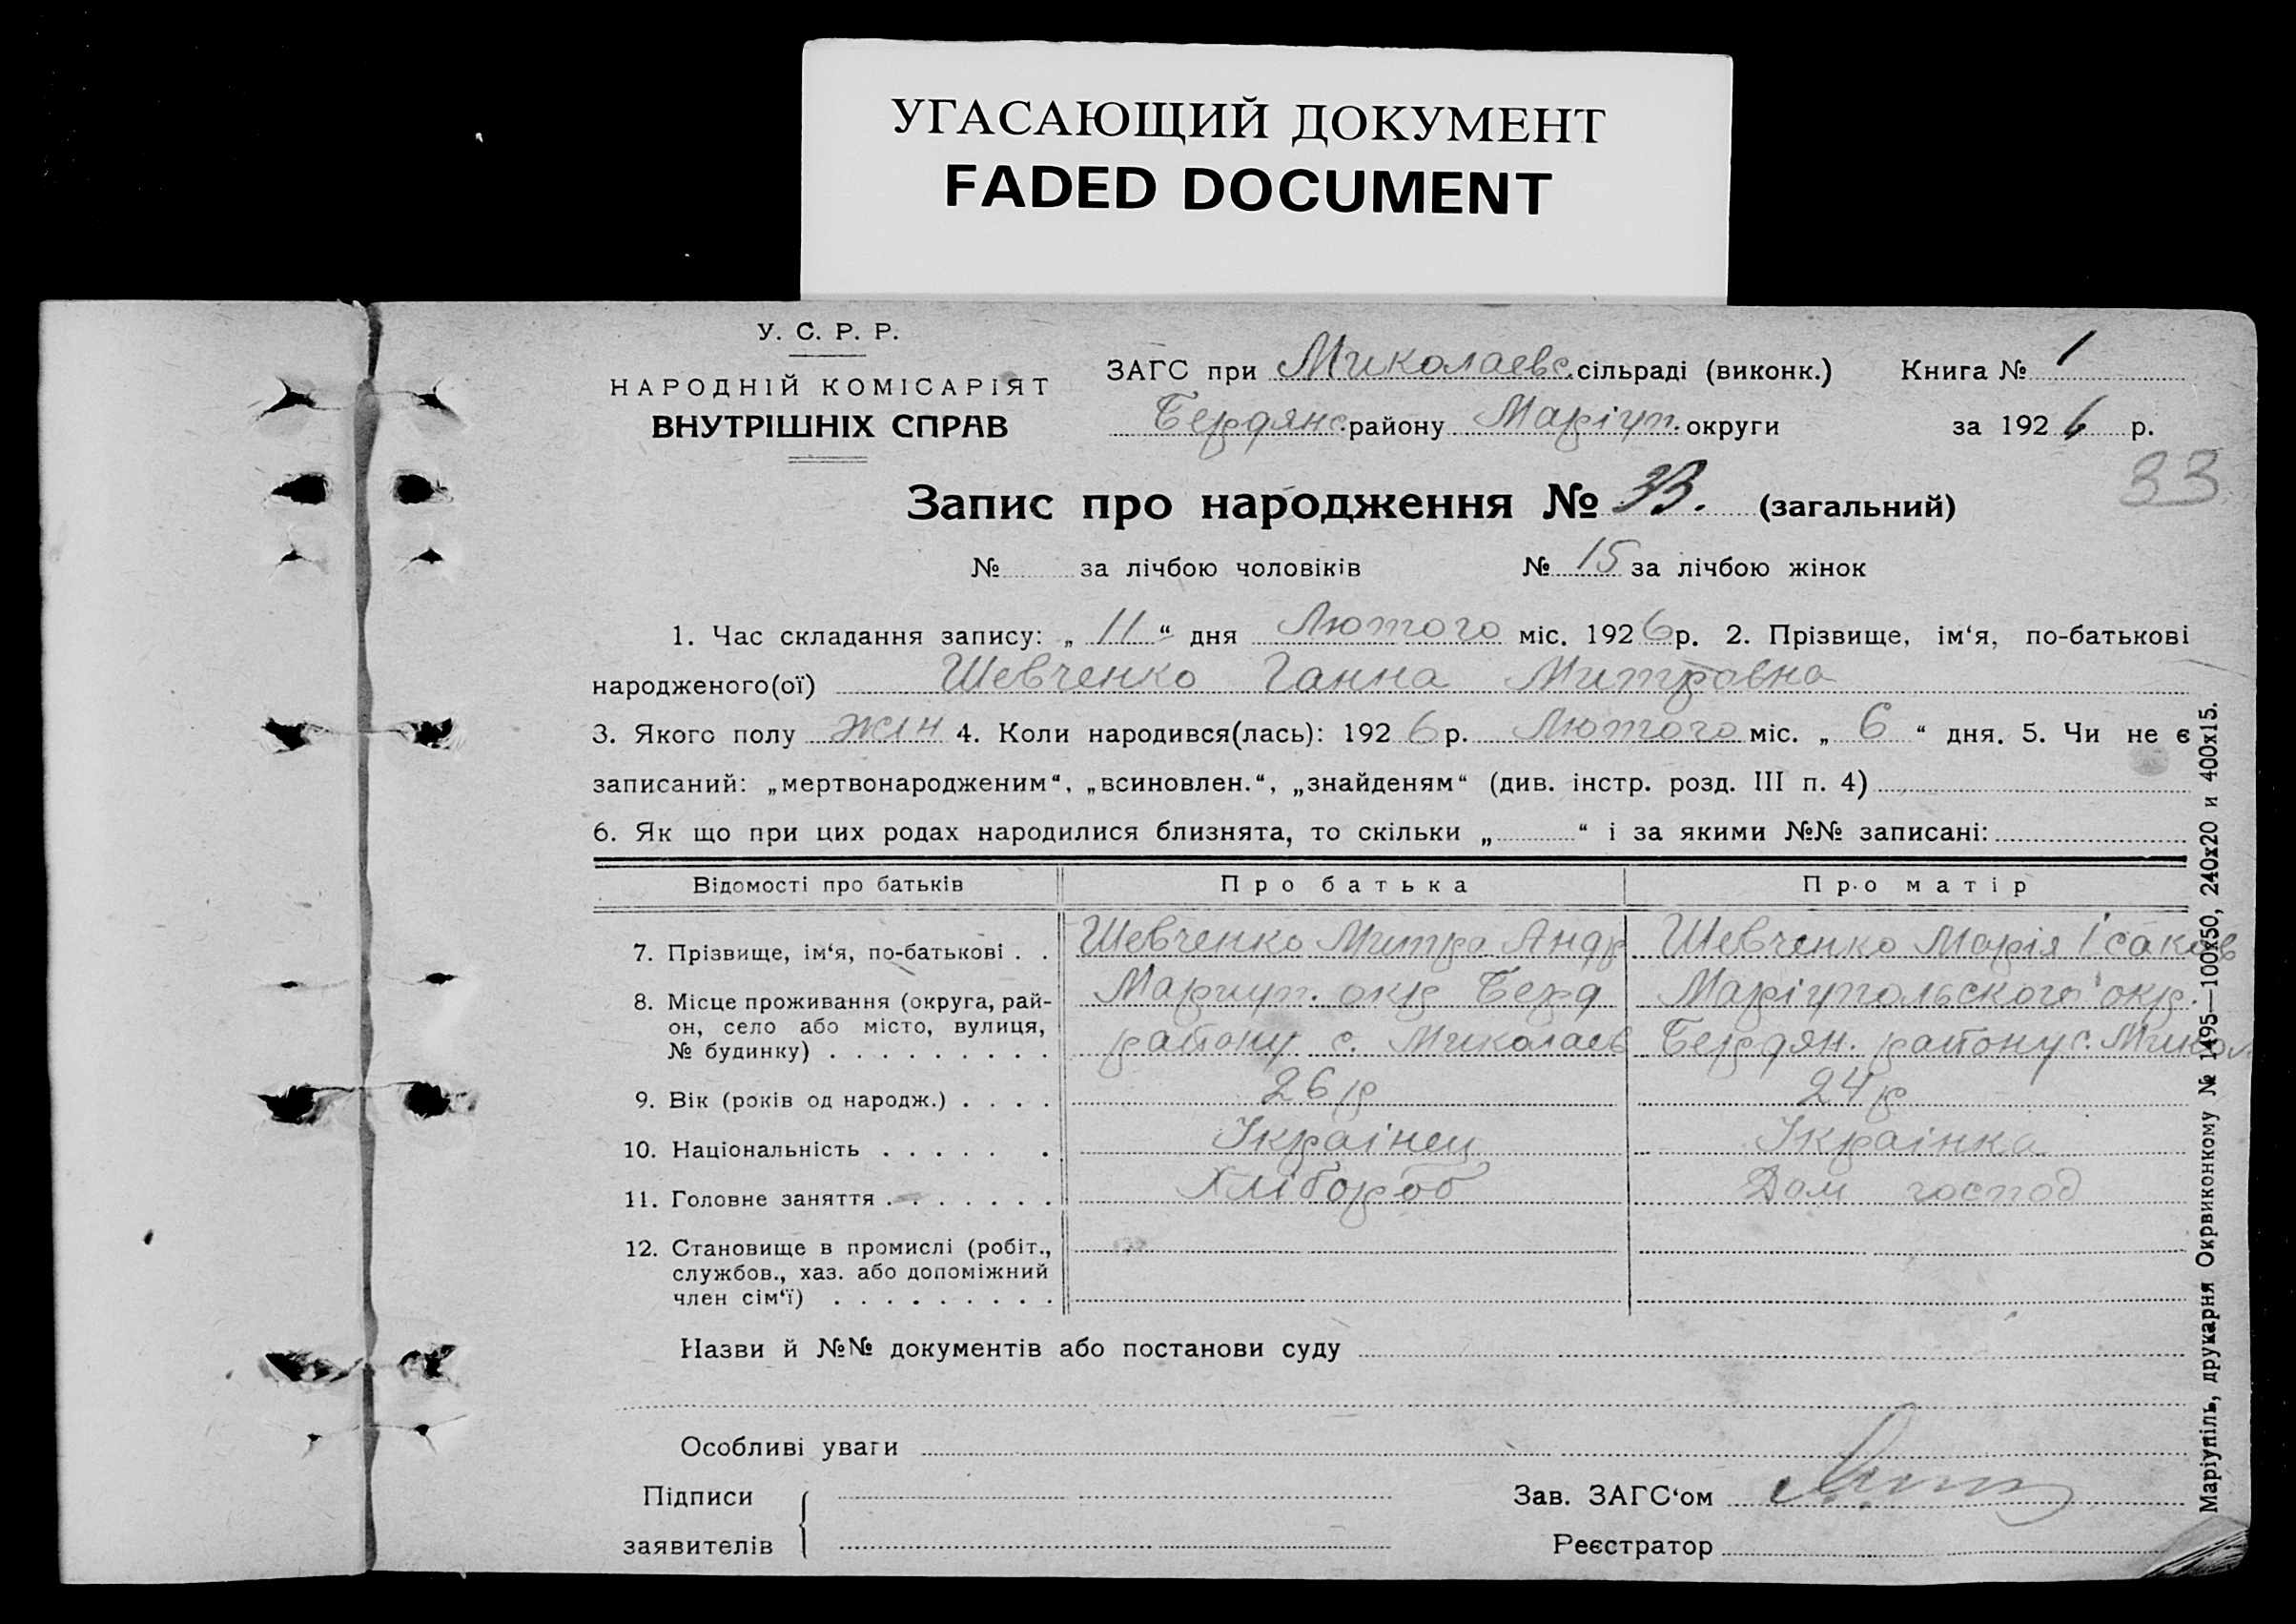 УГАСАЮЩИЙ ДОКУМЕНТ
FADED DOCUMENT
У. С. Р. Р.
НАРОДНІЙ КОМІСАРІЯТ
ВНУТРІШНІХ СПРАВ
ЗАГС при Миколаевс. сільраді (виконк.) Книга № 1
Бердянс. району Маріуп. округи за 1926 р.
33
Запис про народження № 33. (загальний)
№ за лічбою чоловіків № 15 за лічбою жінок
1. Час складання запису: „ 11 “ дня Лютого міс. 1926 р. 2. Прізвище, ім‘я, по-батькові
народженого(ої) Шевченко Ганна Митровна
3. Якого полу жін 4. Коли народився(лась): 1926 р. Лютого міс. „ 6 “ дня. 5. Чи не є
записаний: „мертвонародженим“, „всиновлен.“, „знайденям“ (див. інстр. розд. III п. 4)
6. Як що при цих родах народилися близнята, то скільки „ “ і за якими №№ записані:
Відомості про батьків Про батька Про матір
7. Прізвище, ім‘я, по-батькові . . Шевченко Митро Андр Шевченко Марія Ісаков
8. Місце проживання (округа, рай- Мариуп. окр Берд Маріупольского окр.
он, село або місто, вулиця, району с. Миколаев Бердян. району с. Микол
№ будинку) . . . . . . . . .
9. Вік (років од народж.) . . . . 26 р 24 р
10. Національність . . . . . . Украінец Украінка
11. Головне заняття . . . . . . . Хлібороб Дом господ
12. Становище в промислі (робіт.,
службов., хаз. або допоміжний
член сім‘ї) . . . . . . . . .
Назви й №№ документів або постанови суду
Особливі уваги
Підписи
заявителів
Зав. ЗАГС‘ом
Реєстратор
Маріупіль, друкарня Окрвиконкому № 1495—100х50, 240х20 и 400х15.